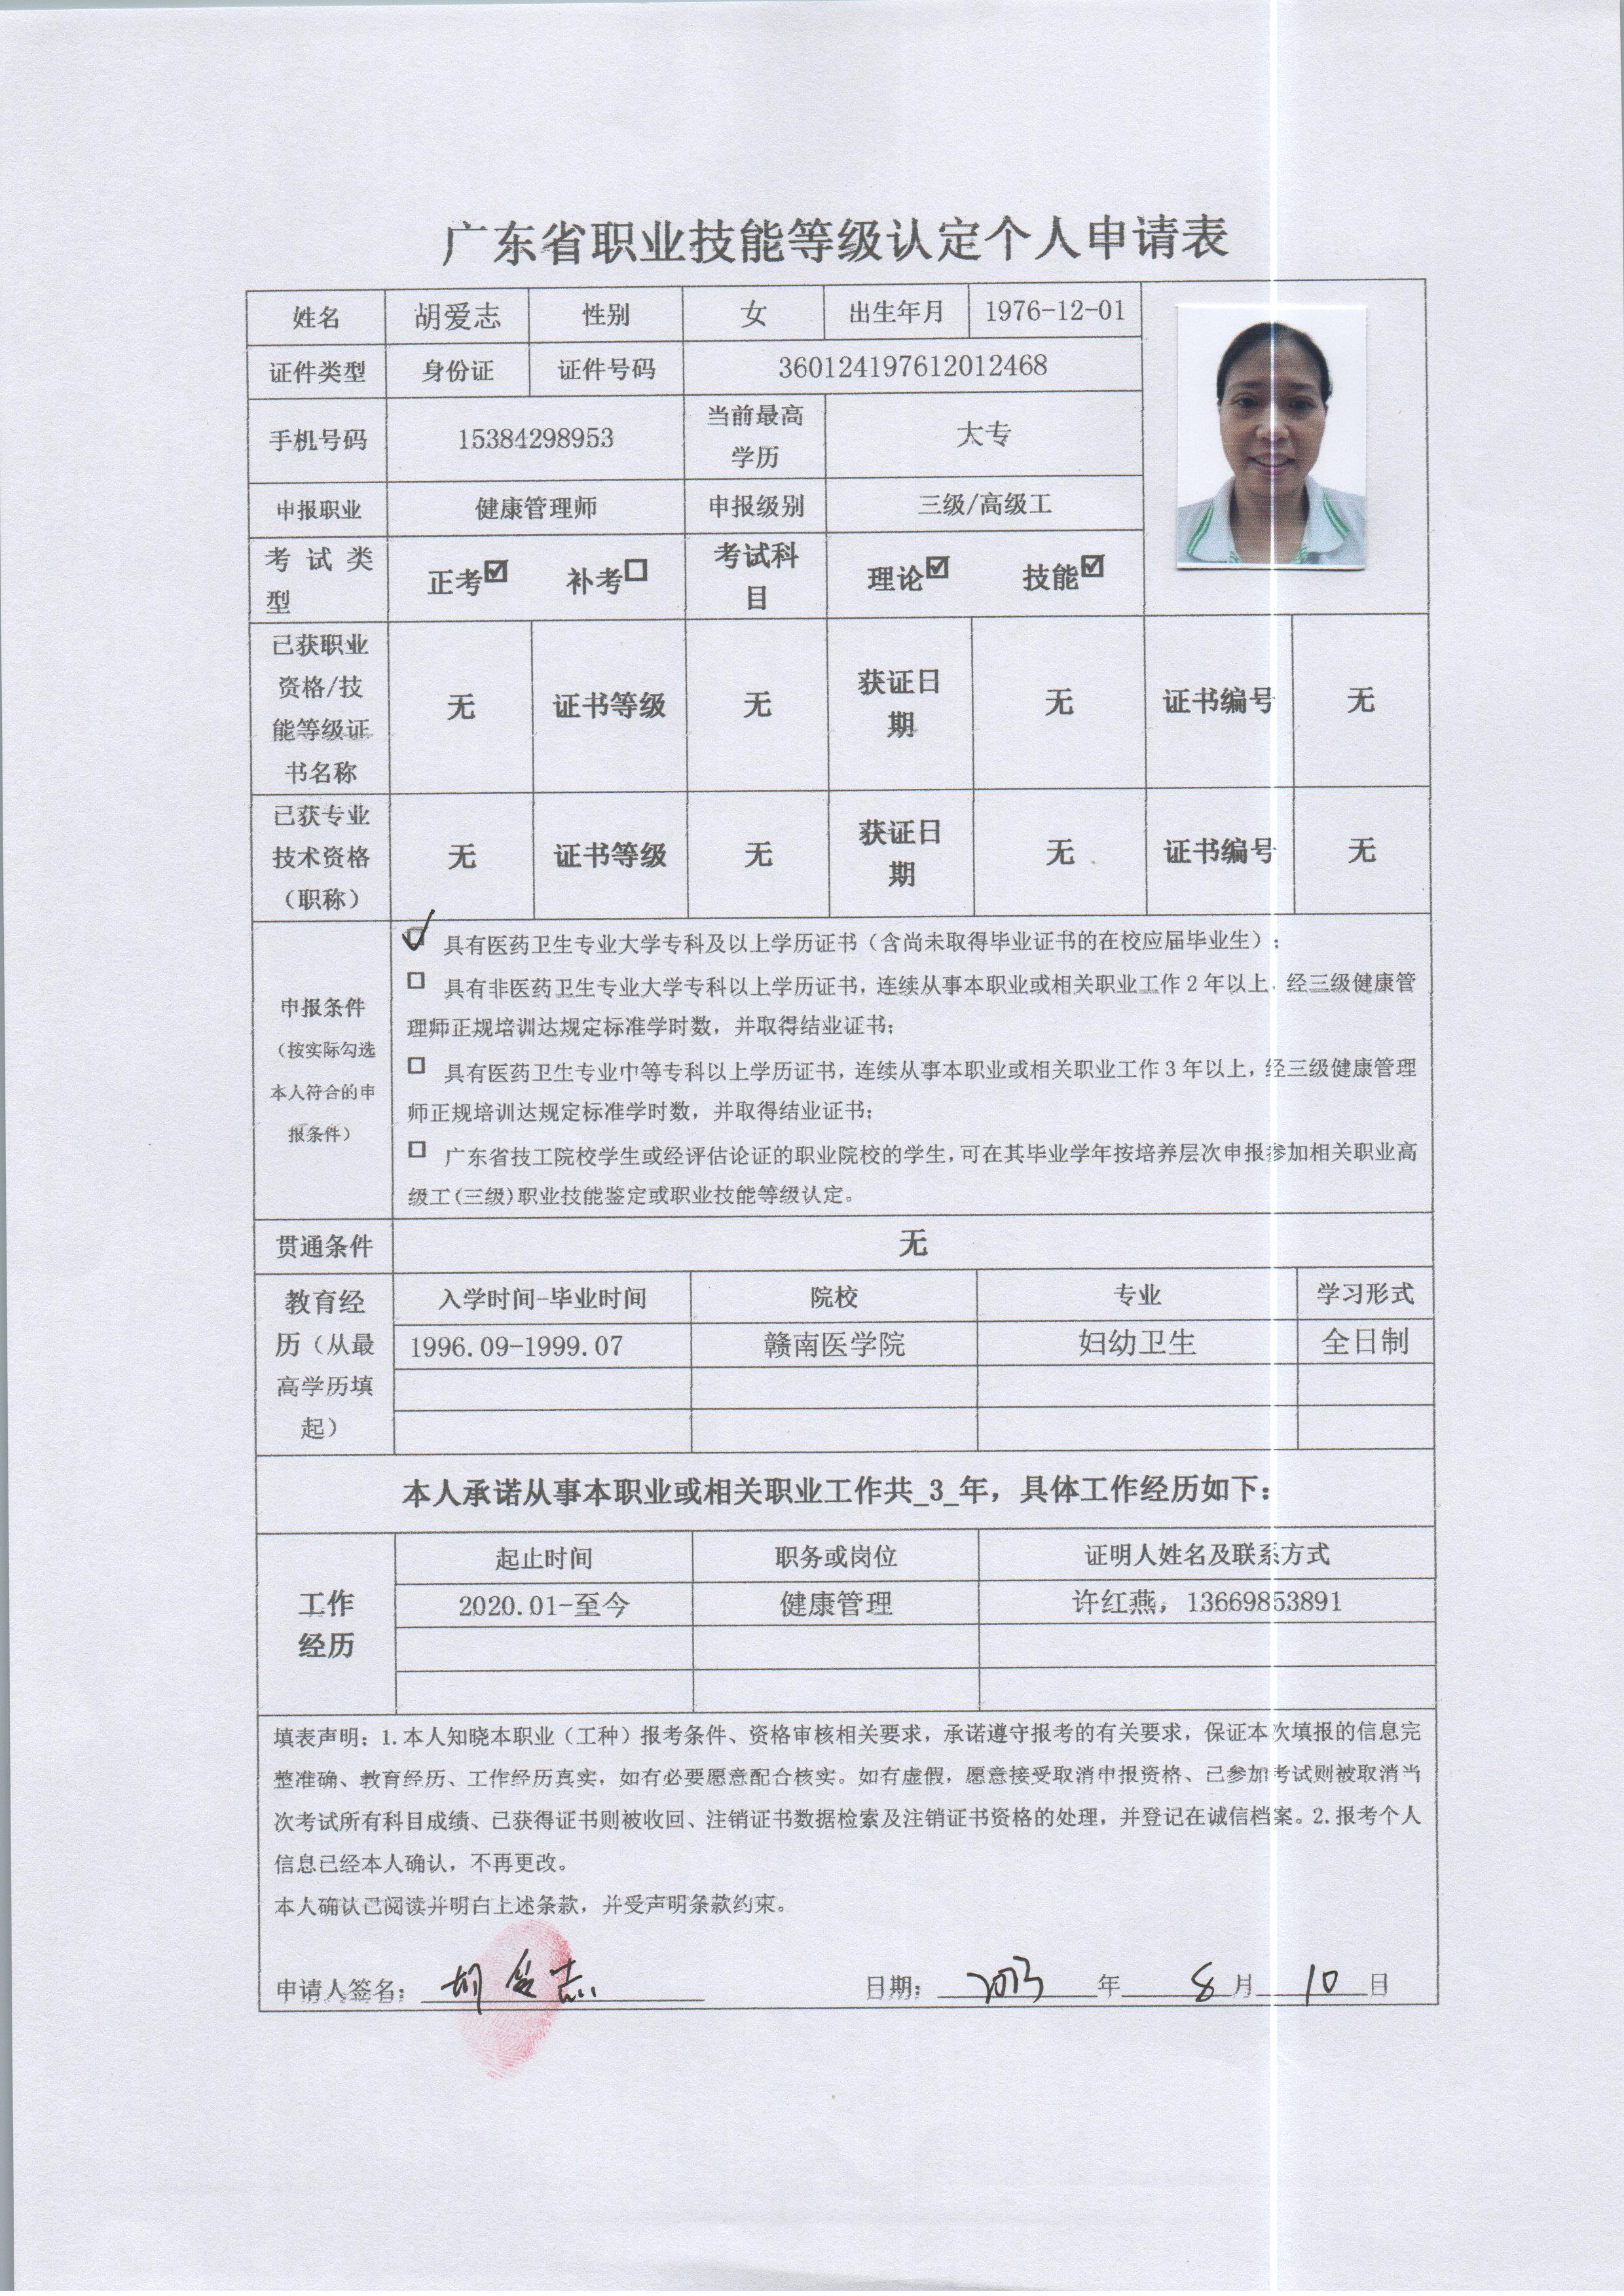 广东省职业技能等级认定个人申请表
姓名 胡爱志 性别 女 出生年月 1976-12-01
证件类型 身份证 证件号码 360124197612012468
手机号码 15384298953 当前最高学历 大专
申报职业 健康管理师 申报级别 三级/高级工
考试类型 正考☑ 补考☐ 考试科目 理论☑ 技能☑
已获职业资格/技能等级证书名称 无 证书等级 无 获证日期 无 证书编号 无
已获专业技术资格（职称） 无 证书等级 无 获证日期 无 证书编号 无
申报条件
（按实际勾选
本人符合的申
报条件）
☑ 具有医药卫生专业大学专科及以上学历证书（含尚未取得毕业证书的在校应届毕业生）；
☐ 具有非医药卫生专业大学专科以上学历证书，连续从事本职业或相关职业工作2年以上，经三级健康管
理师正规培训达规定标准学时数，并取得结业证书；
☐ 具有医药卫生专业中等专科以上学历证书，连续从事本职业或相关职业工作3年以上，经三级健康管理
师正规培训达规定标准学时数，并取得结业证书；
☐ 广东省技工院校学生或经评估论证的职业院校的学生，可在其毕业学年按培养层次申报参加相关职业高
级工(三级)职业技能鉴定或职业技能等级认定。
贯通条件 无
教育经历（从最高学历填起）
入学时间-毕业时间 院校 专业 学习形式
1996.09-1999.07 赣南医学院 妇幼卫生 全日制
本人承诺从事本职业或相关职业工作共_3_年，具体工作经历如下：
工作经历
起止时间 职务或岗位 证明人姓名及联系方式
2020.01-至今 健康管理 许红燕，13669853891
填表声明：1.本人知晓本职业（工种）报考条件、资格审核相关要求，承诺遵守报考的有关要求，保证本次填报的信息完
整准确、教育经历、工作经历真实，如有必要愿意配合核实。如有虚假，愿意接受取消申报资格、已参加考试则被取消当
次考试所有科目成绩、已获得证书则被收回、注销证书数据检索及注销证书资格的处理，并登记在诚信档案。2.报考个人
信息已经本人确认，不再更改。
本人确认已阅读并明白上述条款，并受声明条款约束。
申请人签名：胡爱志 日期：2023年8月10日